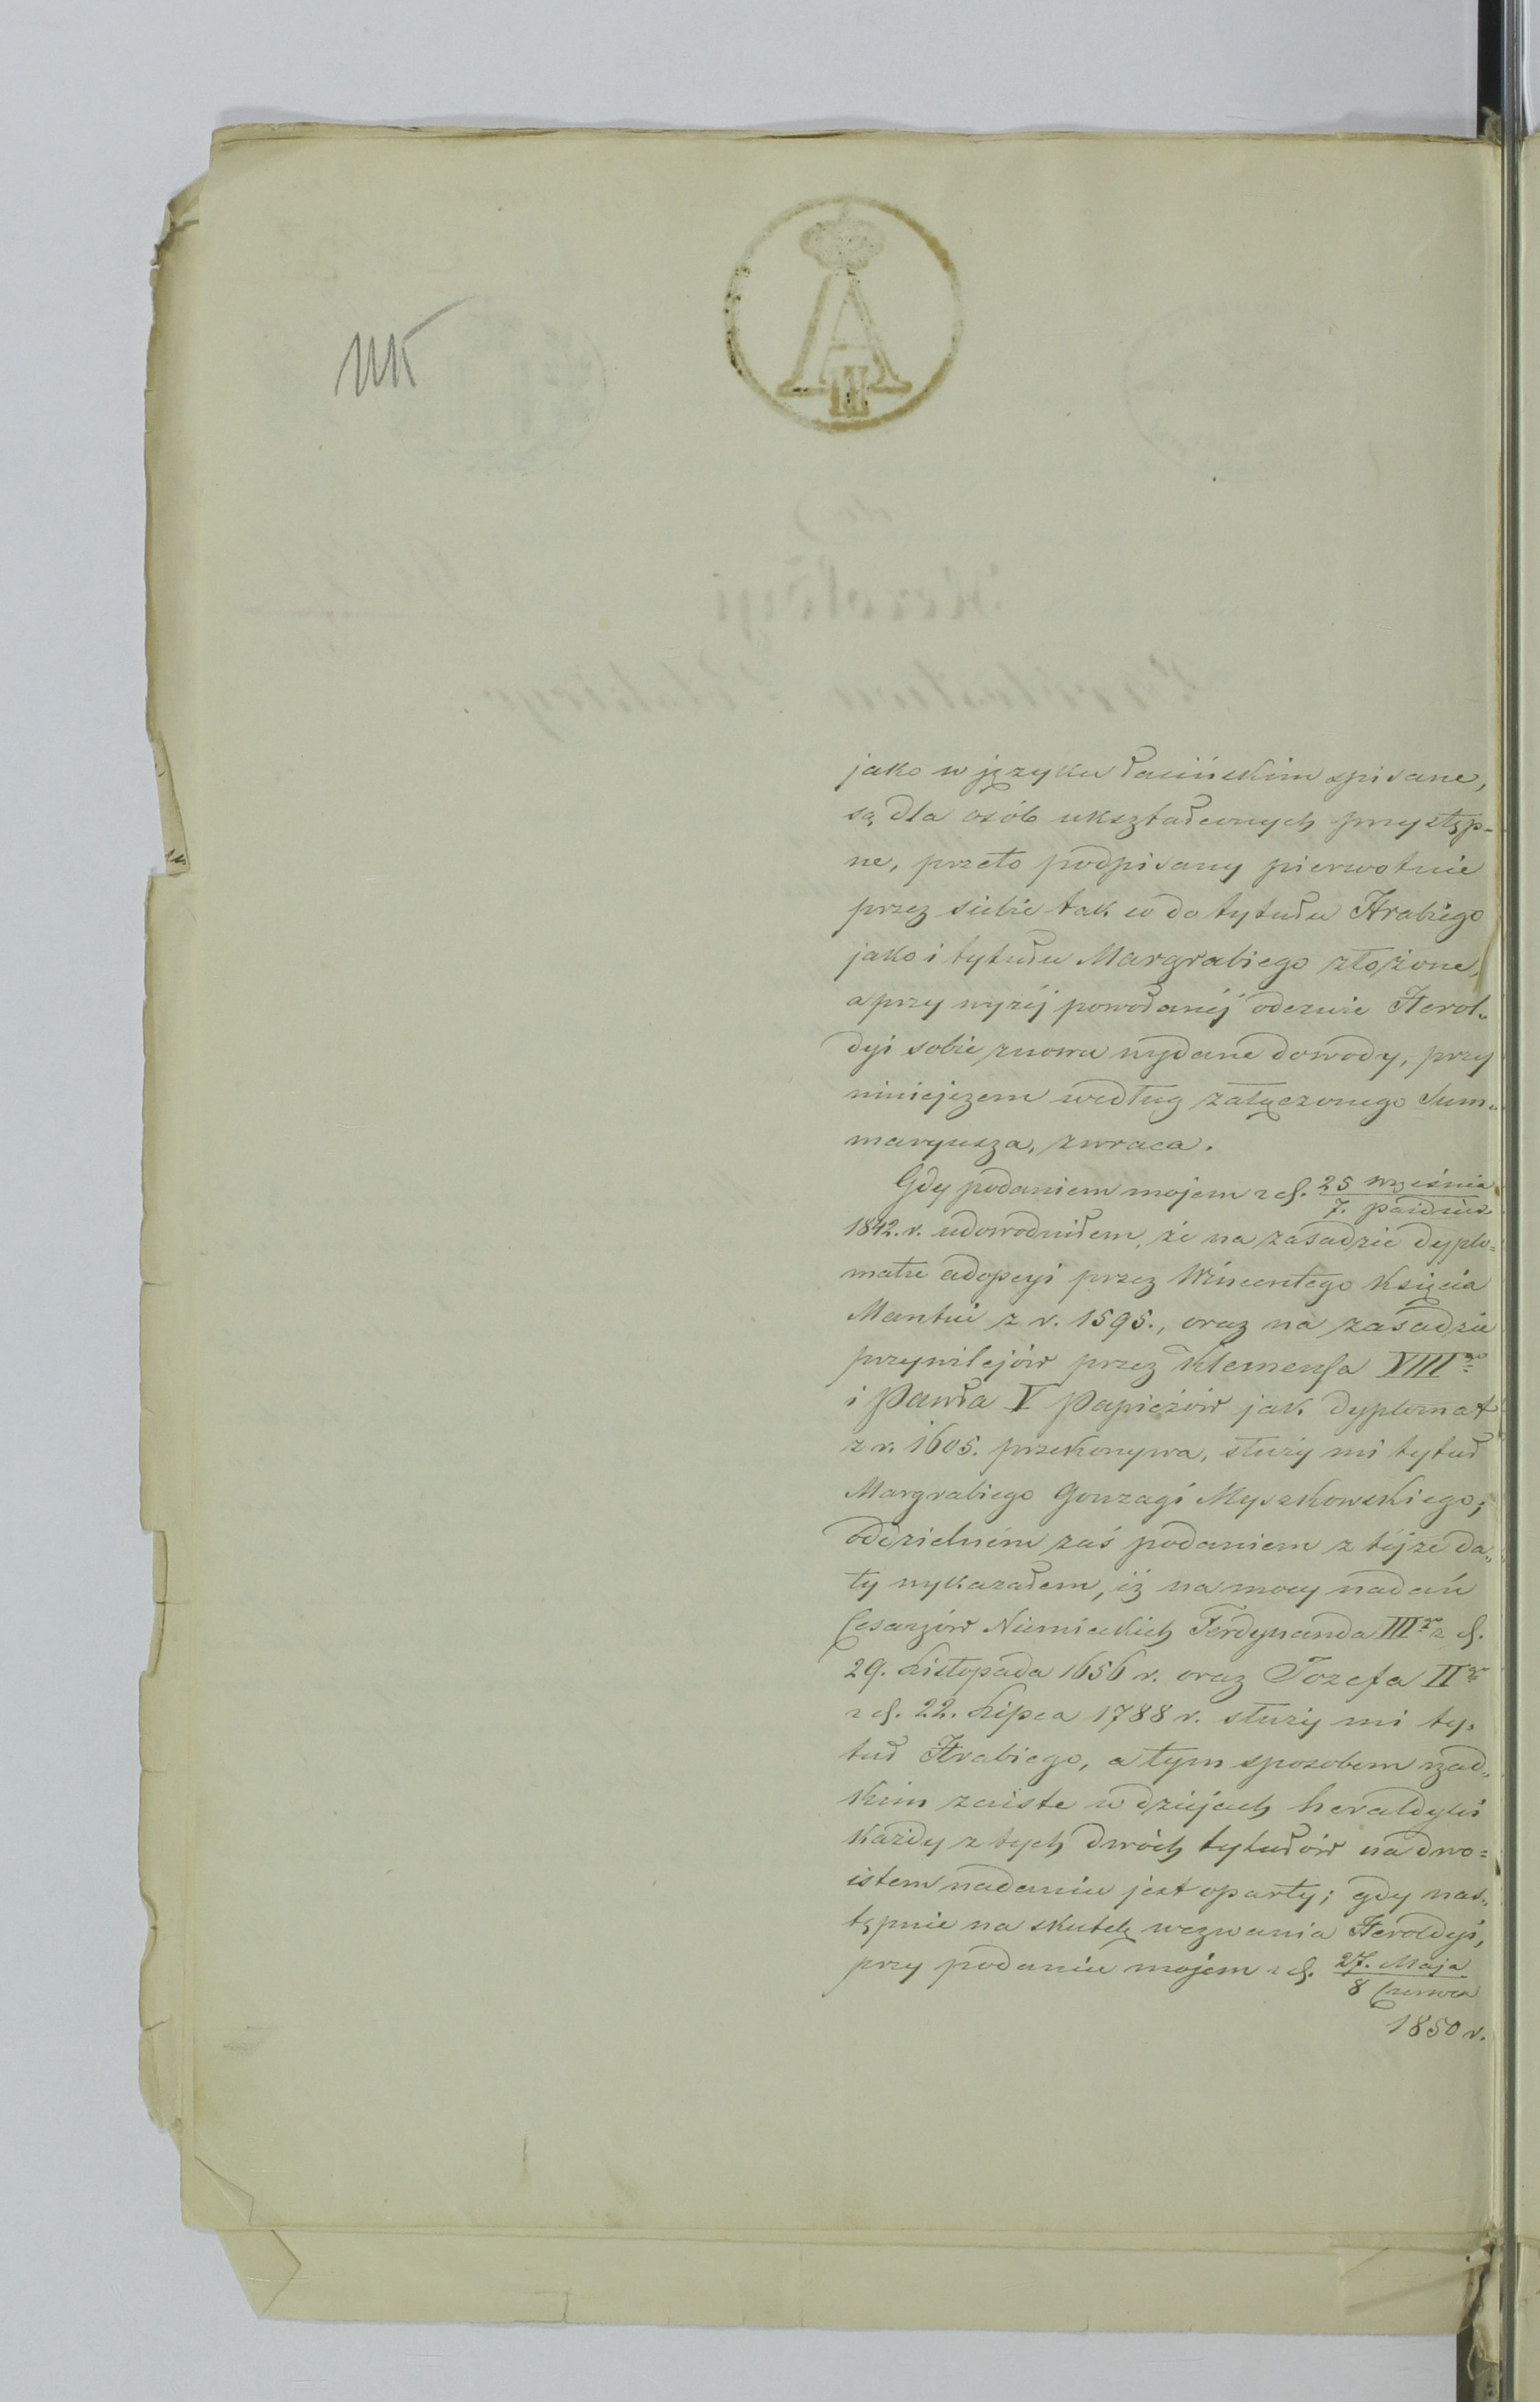 A
II
jako w języku łacińskim spisane,
są dla osób ukształconych przystęp-
ne, przeto podpisany pierwotnie
przez siebie tak co do tytułu Hrabiego
jako i tytułu Margrabiego złożone,
a przy wyżéj powołanéj odezwie Herol-
dyi sobie znowu wydane dowody, przy
niniejszem według załączonego Sum-
maryusza, zwraca.
Gdy podaniem mojem z d. 25 września
7. paźdńka
1842. r. udowodniłem, że na zasadzie dyplo-
matu adopcyi przez Wincentego Księcia
Mantui z r. 1595., oraz na zasadzie
przywilejów przez Klemensa VIIIgo
i Pawła V Papieżów jak dyplomat
z r. 1605. przekonywa, służy mi tytuł
Margrabiego Gonzagi Myszkowskiego;
oddzielném zaś podaniem z téjże da-
ty wykazałem, iż na mocy nadań
Cesarzów Niemieckich Ferdynanda IIIgo z d.
29. Listopada 1656 r. oraz Jozefa IIgo
z d. 22. Lipca 1788 r. służy mi ty-
tuł Hrabiego, a tym sposobem rzad-
kim zaiste w dziejach heraldyki
każdy z tych dwóch tytułów na dwo=
istem nadaniu jest oparty; gdy nas-
tępnie na skutek wezwania Heroldyi,
przy podaniu mojém z d. 27. Maja
8 Czerwca
1850 r.